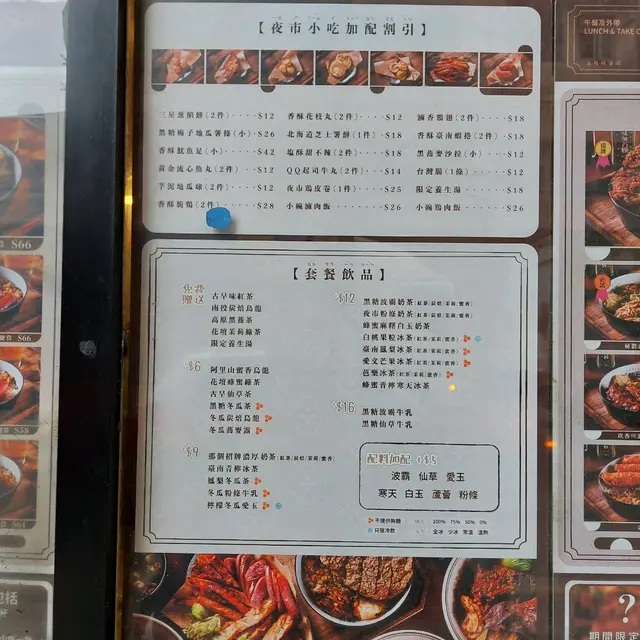 【夜市小吃加配割引】
三星蔥餡餅(2件)‧‧‧‧$12
黑糖梅子地瓜薯條(小)‧$26
香酥魷魚足(小)‧‧‧‧‧$42
黃金流心魚丸(2件)‧‧$12
芋泥地瓜球(2件)‧‧‧‧$12
香酥脆鷄(2件)‧‧‧$28
香酥花枝丸(2件)‧‧‧‧$12
北海道芝士薯餅(1件)‧$18
塩酥甜不辣(2件)‧‧‧‧$18
QQ起司牛丸(2件)‧‧‧$14
夜市鷄皮卷(1件)‧‧‧‧$25
小碗滷肉飯‧‧‧‧‧‧‧$26
滷香鷄翅(2件)‧‧‧‧$18
香酥臺南蝦捲(2件)‧‧$18
黑蕎麥沙拉(小)‧‧‧‧$12
台灣腸(1條)‧‧‧‧‧$12
限定養生湯‧‧‧‧‧‧$18
小碗鷄肉飯‧‧‧‧‧‧$26
【套餐飲品】
免費贈送
古早味紅茶
南投炭焙烏龍
高原黑蕎茶
花壇茉莉綠茶
限定養生湯
$6
阿里山蜜香烏龍
花壇蜂蜜綠茶
古早仙草茶
黑糖冬瓜茶
冬瓜炭焙烏龍
冬瓜蕎麥露
$9
那個招牌濃厚奶茶(紅茶/炭焙/茉莉/蜜香)
臺南青檸冰茶
鳳梨冬瓜茶
冬瓜粉條牛乳
檸檬冬瓜愛玉
$12
黑糖波霸奶茶(紅茶/炭焙/茉莉/蜜香)
夜市粉條奶茶(紅茶/炭焙/茉莉/蜜香)
蜂蜜麻糬白玉奶茶
白桃果粒冰茶(紅茶/茉莉/蜜香)
臺南鳳梨冰茶(紅茶/茉莉/蜜香)
愛文芒果冰茶(紅茶/茉莉/蜜香)
芭樂冰茶(紅茶/茉莉/蜜香)
蜂蜜青檸寒天冰茶
$16
黑糖波霸牛乳
黑糖仙草牛乳
配料加配 +$5
波霸 仙草 愛玉
寒天 白玉 蘆薈 粉條
不提供無糖
100% 75% 50% 0%
只限冷飲
全冰 少冰 常溫 溫熱
午餐及外帶
LUNCH & TAKE O
$66
$58
?
期間限定